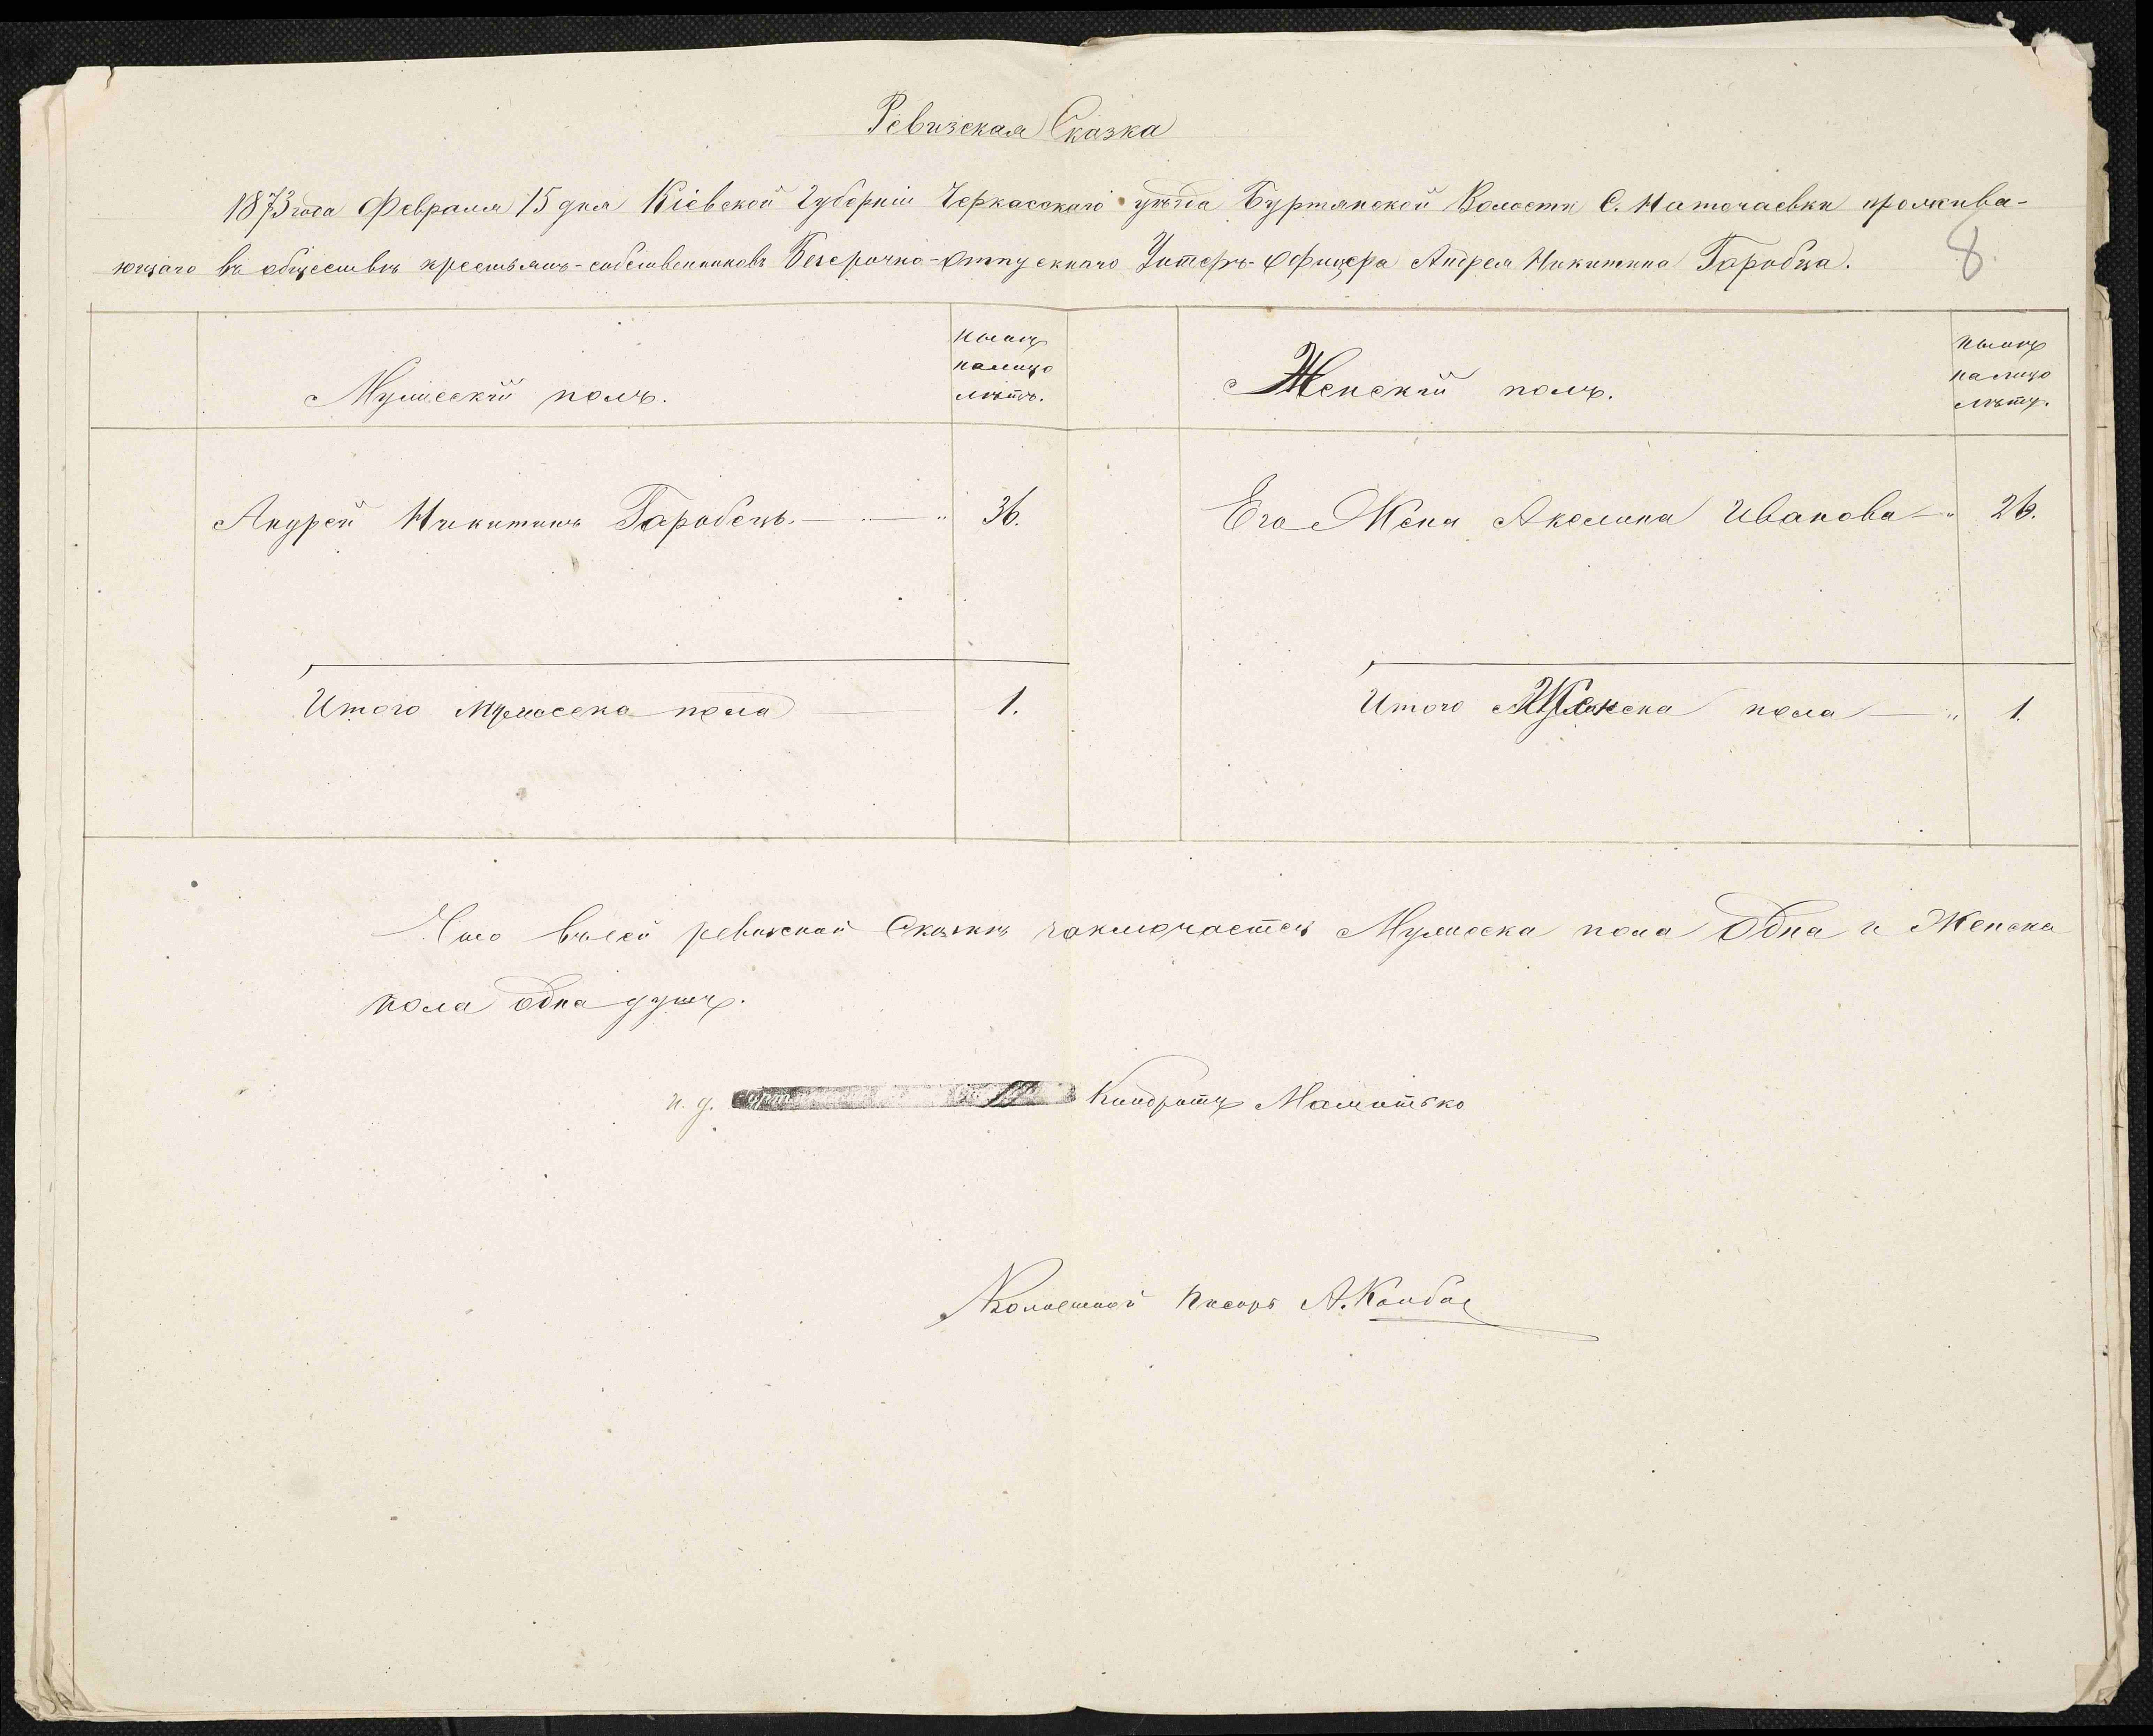 Ревизская Сказка
1873 года Февраля 15 дня Кіевской Губерніи Черкасскаго уѣзда Буртянской Волости С. Наточаевки прожива-
ющаго въ обществѣ крестьянъ-собственниковъ Безсрочно-отпускнаго Унтеръ-Офицера Андрея Никитина Гаробца.
8
Мужескій полъ.
нынѣ
налицо
лѣтъ.
Женскій полъ.
нынѣ
налицо
лѣтъ.
Андрей Никитинъ Гаробецъ. — " 36.
Его Жена Акелина Иванова — " 26.
Итого Мужеска пола 1.
Итого Женска пола — " 1.
Что въ сей ревизской Сказкѣ заключается Мужеска пола Одна и Женска
пола одна душъ.
и. д. Кондратъ
Волостной Писарь А.